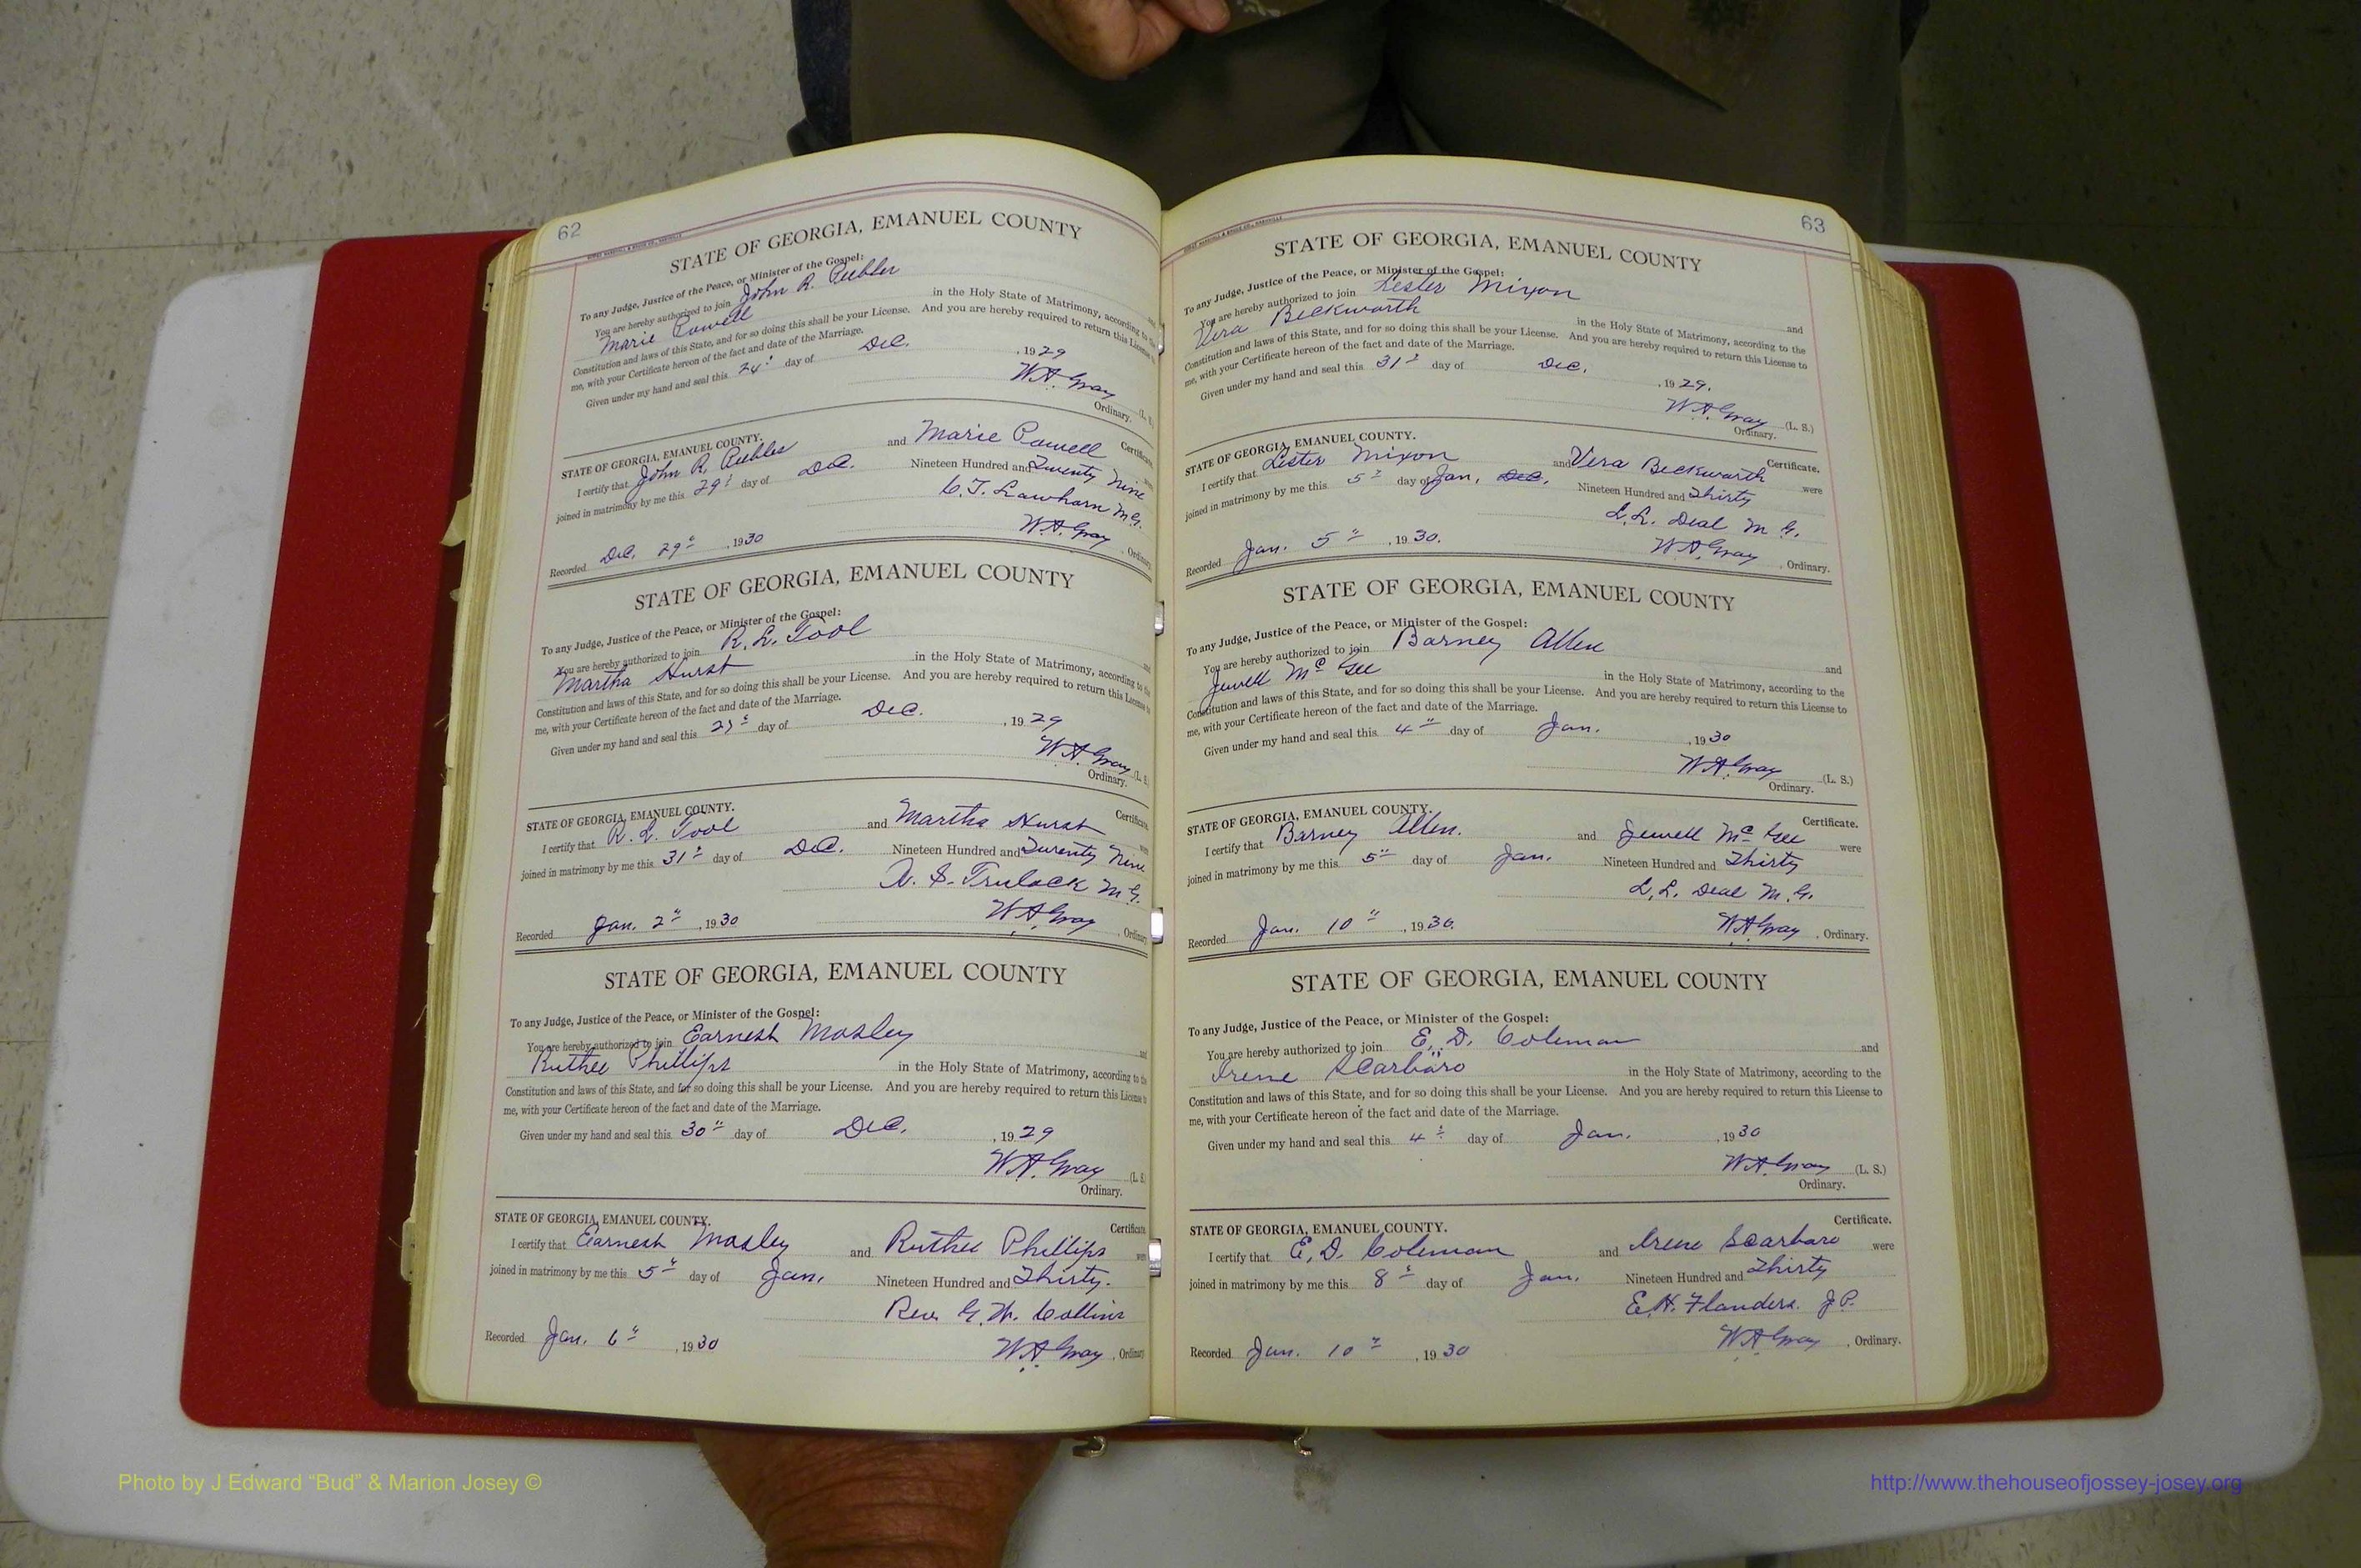 62
STATE OF GEORGIA, EMANUEL COUNTY
To any Judge, Justice of the Peace, or Minister of the Gospel:
You are hereby authorized to join John R. Peebler and
Marie Powell in the Holy State of Matrimony, according to the
Constitution and laws of this State, and for so doing this shall be your License. And you are hereby required to return this License to
me, with your Certificate hereon of the fact and date of the Marriage.
Given under my hand and seal this 24" day of Dec. , 1929
W.A. Gray (L. S.)
Ordinary.
STATE OF GEORGIA, EMANUEL COUNTY. Certificate.
I certify that John R. Peebler and Marie Powell
joined in matrimony by me this 29" day of Dec. Nineteen Hundred and Twenty Nine
C.T. Lawhorn M.G.
Recorded Dec. 29" , 1930 W.A. Gray , Ordinary.
STATE OF GEORGIA, EMANUEL COUNTY
To any Judge, Justice of the Peace, or Minister of the Gospel:
You are hereby authorized to join R. L. Tool and
Martha Hurst in the Holy State of Matrimony, according to the
Constitution and laws of this State, and for so doing this shall be your License. And you are hereby required to return this License to
me, with your Certificate hereon of the fact and date of the Marriage.
Given under my hand and seal this day of Dec. , 1929
W.A. Gray (L. S.)
Ordinary.
STATE OF GEORGIA, EMANUEL COUNTY. Certificate.
I certify that R. L. Tool and Martha Hurst were
joined in matrimony by me this 31" day of Dec. Nineteen Hundred and Twenty Nine
A. S. Trulock M.G.
Recorded Jan. 2" , 1930 W.A. Gray , Ordinary
STATE OF GEORGIA, EMANUEL COUNTY
To any Judge, Justice of the Peace, or Minister of the Gospel:
You are hereby authorized to join Earnest Mosley and
Ruthee Phillips in the Holy State of Matrimony, according to the
Constitution and laws of this State, and for so doing this shall be your License. And you are hereby required to return this License to
me, with your Certificate hereon of the fact and date of the Marriage.
Given under my hand and seal this 30" day of Dec. , 1929
W.A. Gray (L. S.
Ordinary.
STATE OF GEORGIA, EMANUEL COUNTY. Certificate.
I certify that Earnest Mosley and Ruthee Phillips were
joined in matrimony by me this 5" day of Jan. Nineteen Hundred and Thirty.
Rev. G. W. Collins
Recorded Jan. 6" , 1930 W.A. Gray , Ordinary
63
STATE OF GEORGIA, EMANUEL COUNTY
To any Judge, Justice of the Peace, or Minister of the Gospel:
You are hereby authorized to join Lester Mixon and
Vera Beckworth in the Holy State of Matrimony, according to the
Constitution and laws of this State, and for so doing this shall be your License. And you are hereby required to return this License to
me, with your Certificate hereon of the fact and date of the Marriage.
Given under my hand and seal this 31" day of Dec. , 1929.
W.A. Gray (L. S.)
Ordinary.
STATE OF GEORGIA, EMANUEL COUNTY. Certificate.
I certify that Lester Mixon and Vera Beckworth were
joined in matrimony by me this 5" day of Jan. Dec. Nineteen Hundred and Thirty
L.L. Deal M.G.
Recorded Jan. 5" , 1930. W.A. Gray , Ordinary.
STATE OF GEORGIA, EMANUEL COUNTY
To any Judge, Justice of the Peace, or Minister of the Gospel:
You are hereby authorized to join Barney Allen and
Jewell McGee in the Holy State of Matrimony, according to the
Constitution and laws of this State, and for so doing this shall be your License. And you are hereby required to return this License to
me, with your Certificate hereon of the fact and date of the Marriage.
Given under my hand and seal this 4" day of Jan. , 1930
W.A. Gray (L. S.)
Ordinary.
STATE OF GEORGIA, EMANUEL COUNTY. Certificate.
I certify that Barney Allen. and Jewell McGee were
joined in matrimony by me this 5" day of Jan. Nineteen Hundred and Thirty
L.L. Deal M.G.
Recorded Jan. 10" , 1930. W.A. Gray , Ordinary.
STATE OF GEORGIA, EMANUEL COUNTY
To any Judge, Justice of the Peace, or Minister of the Gospel:
You are hereby authorized to join E. D. Coleman and
Irene Scarboro in the Holy State of Matrimony, according to the
Constitution and laws of this State, and for so doing this shall be your License. And you are hereby required to return this License to
me, with your Certificate hereon of the fact and date of the Marriage.
Given under my hand and seal this 4" day of Jan. , 1930
W.A. Gray (L. S.)
Ordinary.
STATE OF GEORGIA, EMANUEL COUNTY. Certificate.
I certify that E. D. Coleman and Irene Scarboro were
joined in matrimony by me this 8" day of Jan. Nineteen Hundred and Thirty
E.H. Flanders. J.P.
Recorded Jan. 10" , 1930 W.A. Gray , Ordinary.
Photo by J Edward “Bud” & Marion Josey ©
http://www.thehouseofjossey-josey.org